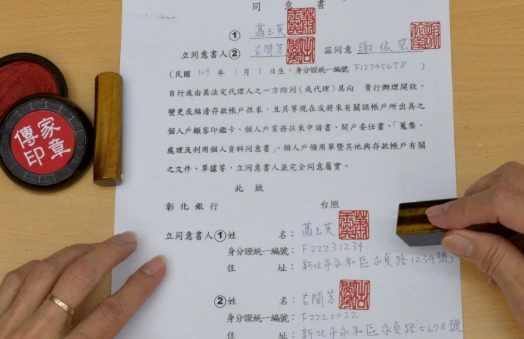 同意書
①
立同意書人② 茲同意
(民國 年 1月1日生,身分證統一編號F12345678)
自行或由其法定代理人之一方陪同(或代理)其向 貴行辦理開設、
變更或結清存款帳戶往來,且其等現在或將來有關該帳戶所出具之
個人戶顧客印鑑卡、個人戶業務往來申請書、開戶委任書、「蒐集、
處理及利用個人資料同意書」、個人戶領用單暨其他與存款帳戶有關
之文件、單據等,立同意書人並完全同意屬實。
此致
彰化銀行 台照
立同意書人①姓名:
身分證統一編號:F22231234
住址:新北市永和區永貞路1234號
②姓名:
身分證統一編號:F2220022
住址:新北市永和區永貞路5678號
傳家
印章